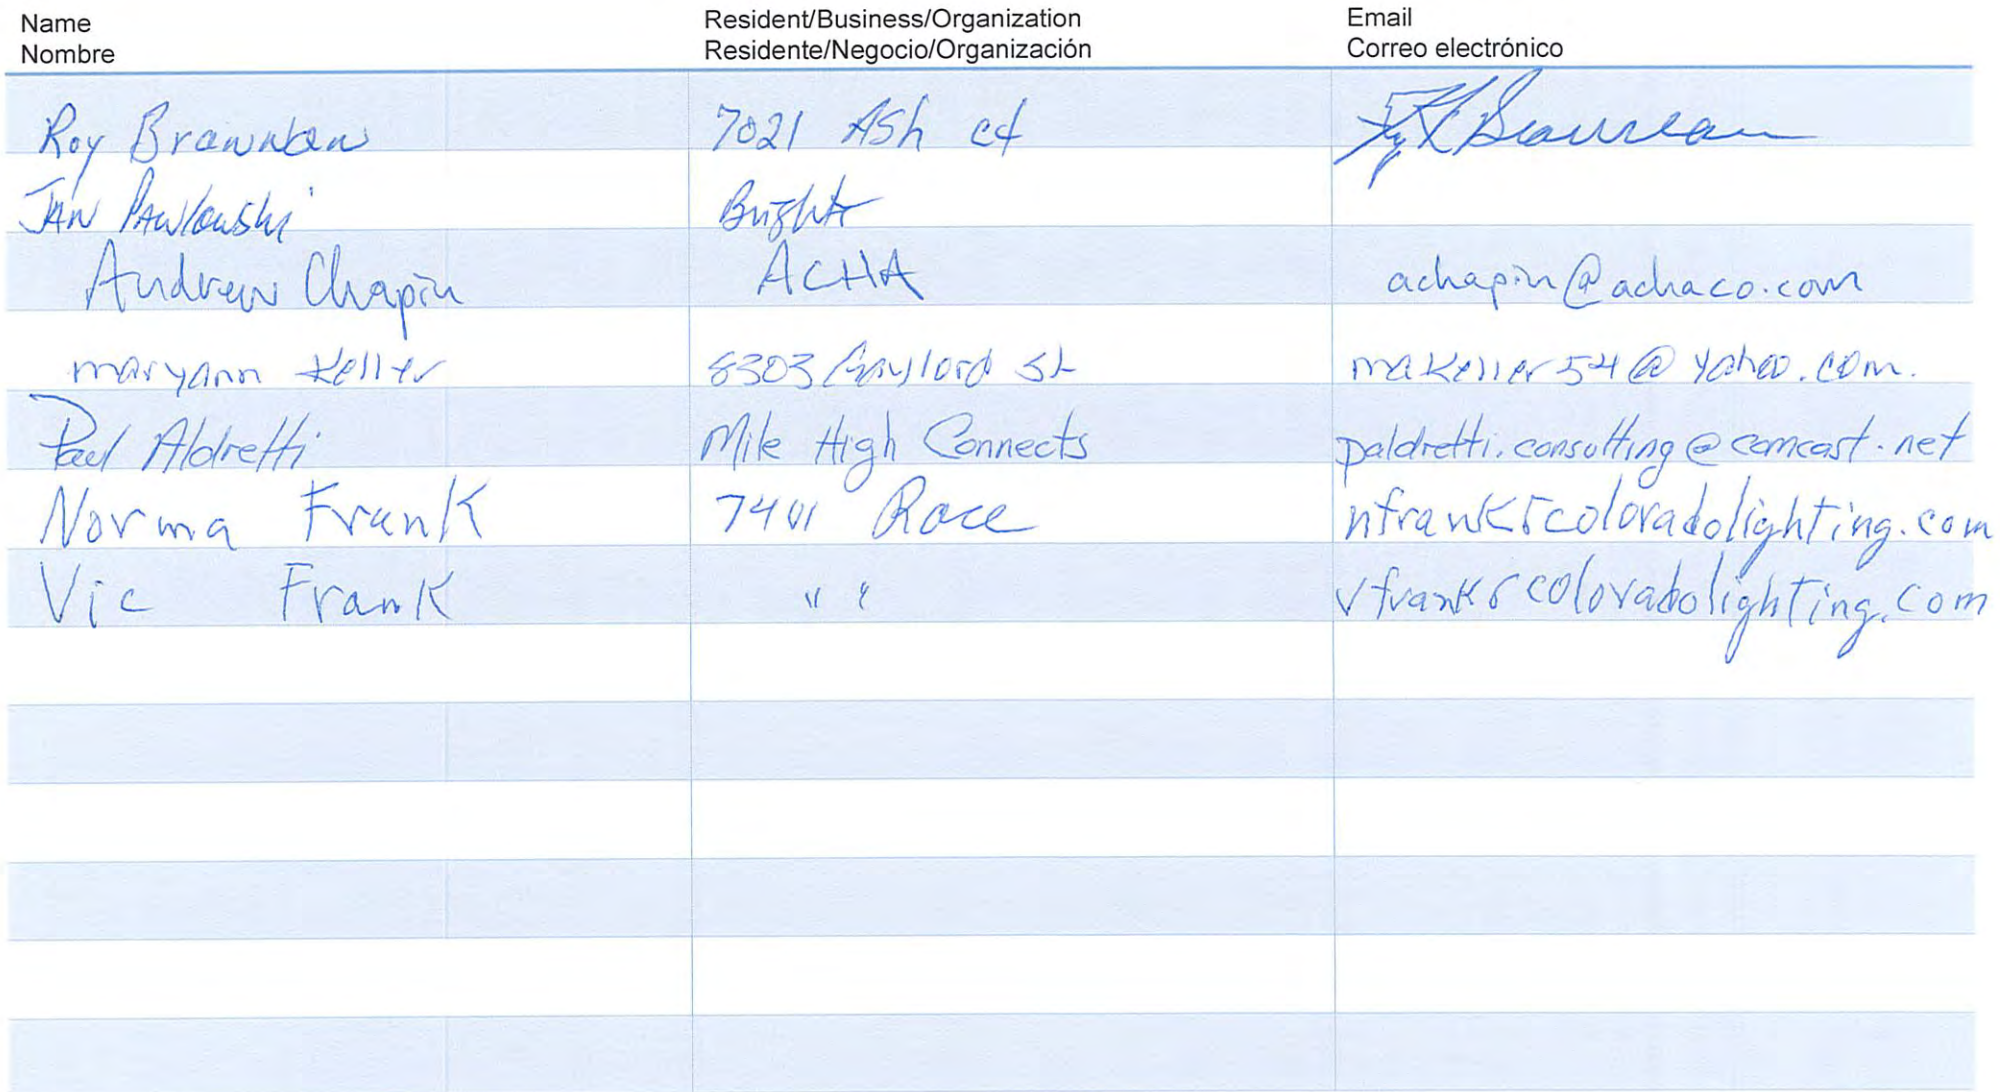 Name Resident/Business/Organization Email
Nombre Residente/Negocio/Organización Correo electrónico
Roy 7021 Ash ct
JAN PAWlowski
Andrew Chapin ACHA achapin@achaco.com
maryann Keller 8303 Gaylord St makeller54@yahoo.com.
Paul Aldretti Mile High Connects paldretti.consulting@comcast.net
Norma Frank 7401 Race nfrank@coloradolighting.com
Vic Frank " " vfrank@coloradolighting.com